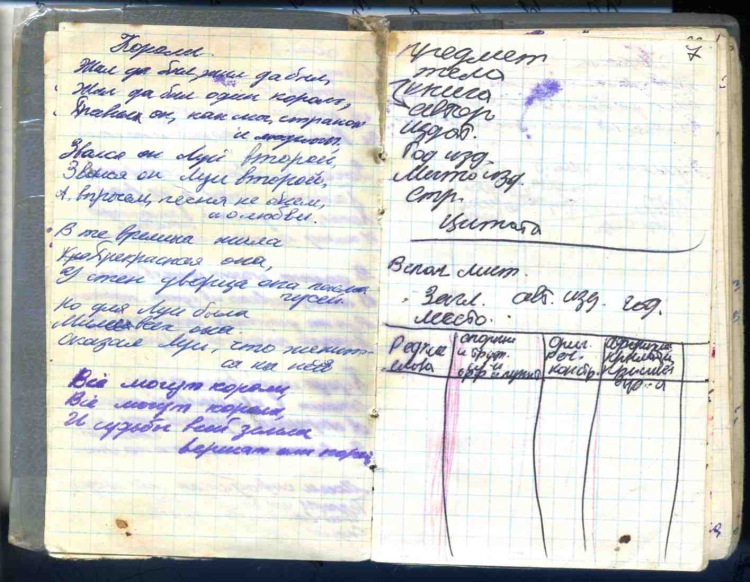 Короли
Жил да был, жил да был,
Жил да был один король,
Правил он, как мог, страной
и людьми.
Звался он Луи Второй,
Звался он Луи Второй,
А, впрочем, песня не о нем,
а о любви.
В те времена жила
Прекрасная она,
У стен дворца она пасла
гусей.
Но для Луи была
Милее всех она.
Сказал Луи, что женит-
ся на ней
Всё могут короли,
Всё могут короли,
И судьбы всей земли
вершат они порой
7
предмет
тема
книга
автор
издат.
Год изд.
Место изд.
Стр.
Цитата
Вспом лит.
Загл. авт. изд. год.
место.
Редкие
слова
спорные
и трудн.
ориг.
реч.
констр.